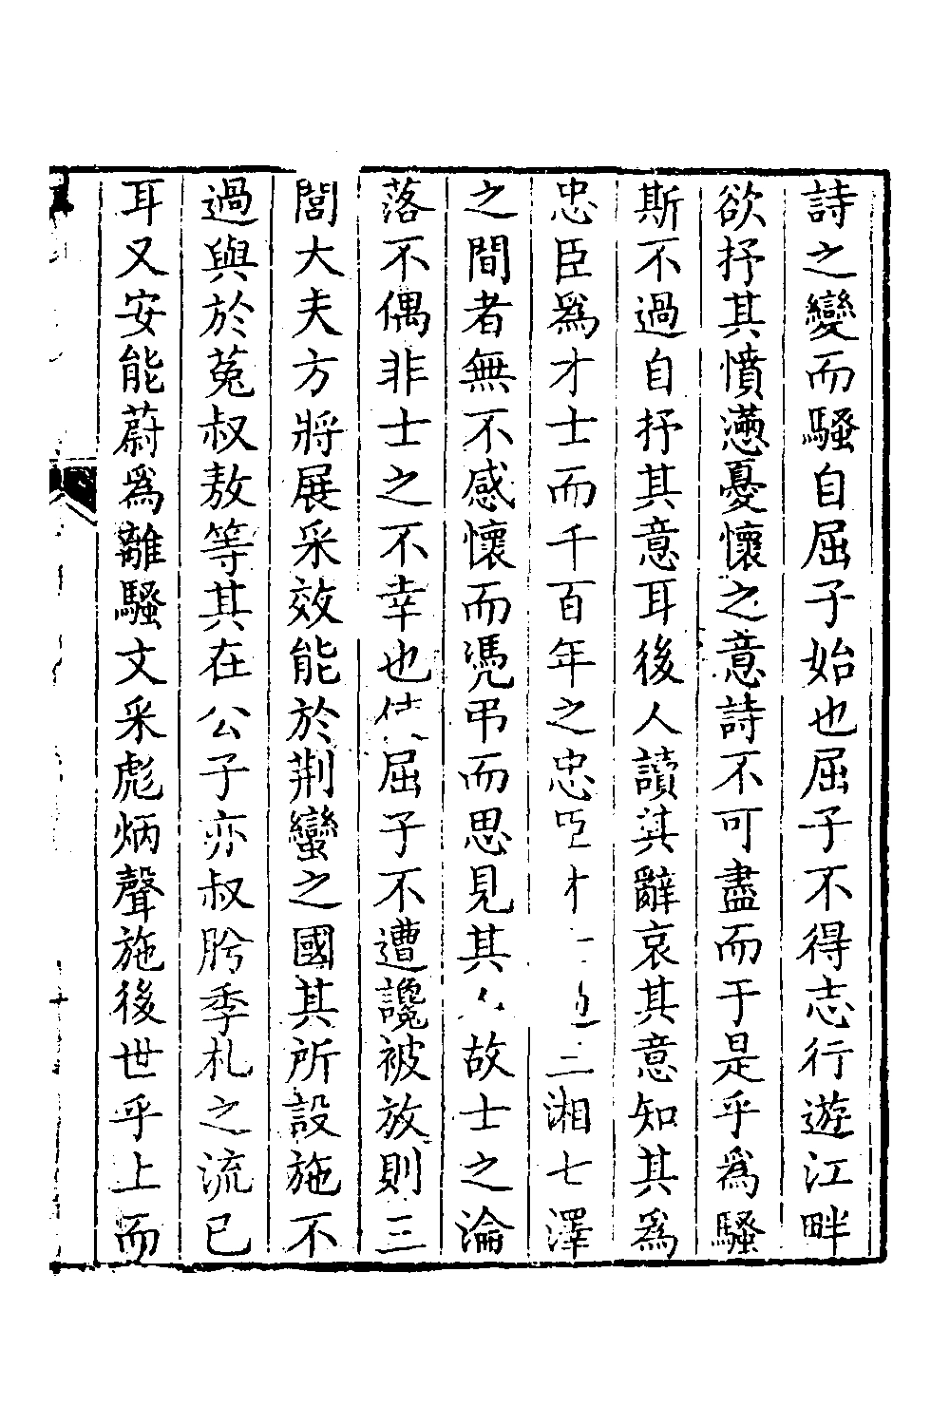 詩之變而騷自屈子始也屈子不得志行遊江畔
欲抒其憤懣憂懷之意詩不可盡而于是乎爲騷
斯不過自抒其意耳後人讀其辭哀其意知其爲
忠臣爲才士而千百年之忠臣才三湘七澤
之間者無不感懷而憑弔而思見其人故士之淪
落不偶非士之不幸也使屈子不遭讒被放則三
閭大夫方將展采效能於荆蠻之國其所設施不
過與於菟叔敖等其在公子亦叔肸季札之流已
耳又安能蔚爲離騷文采彪炳聲施後世乎上而